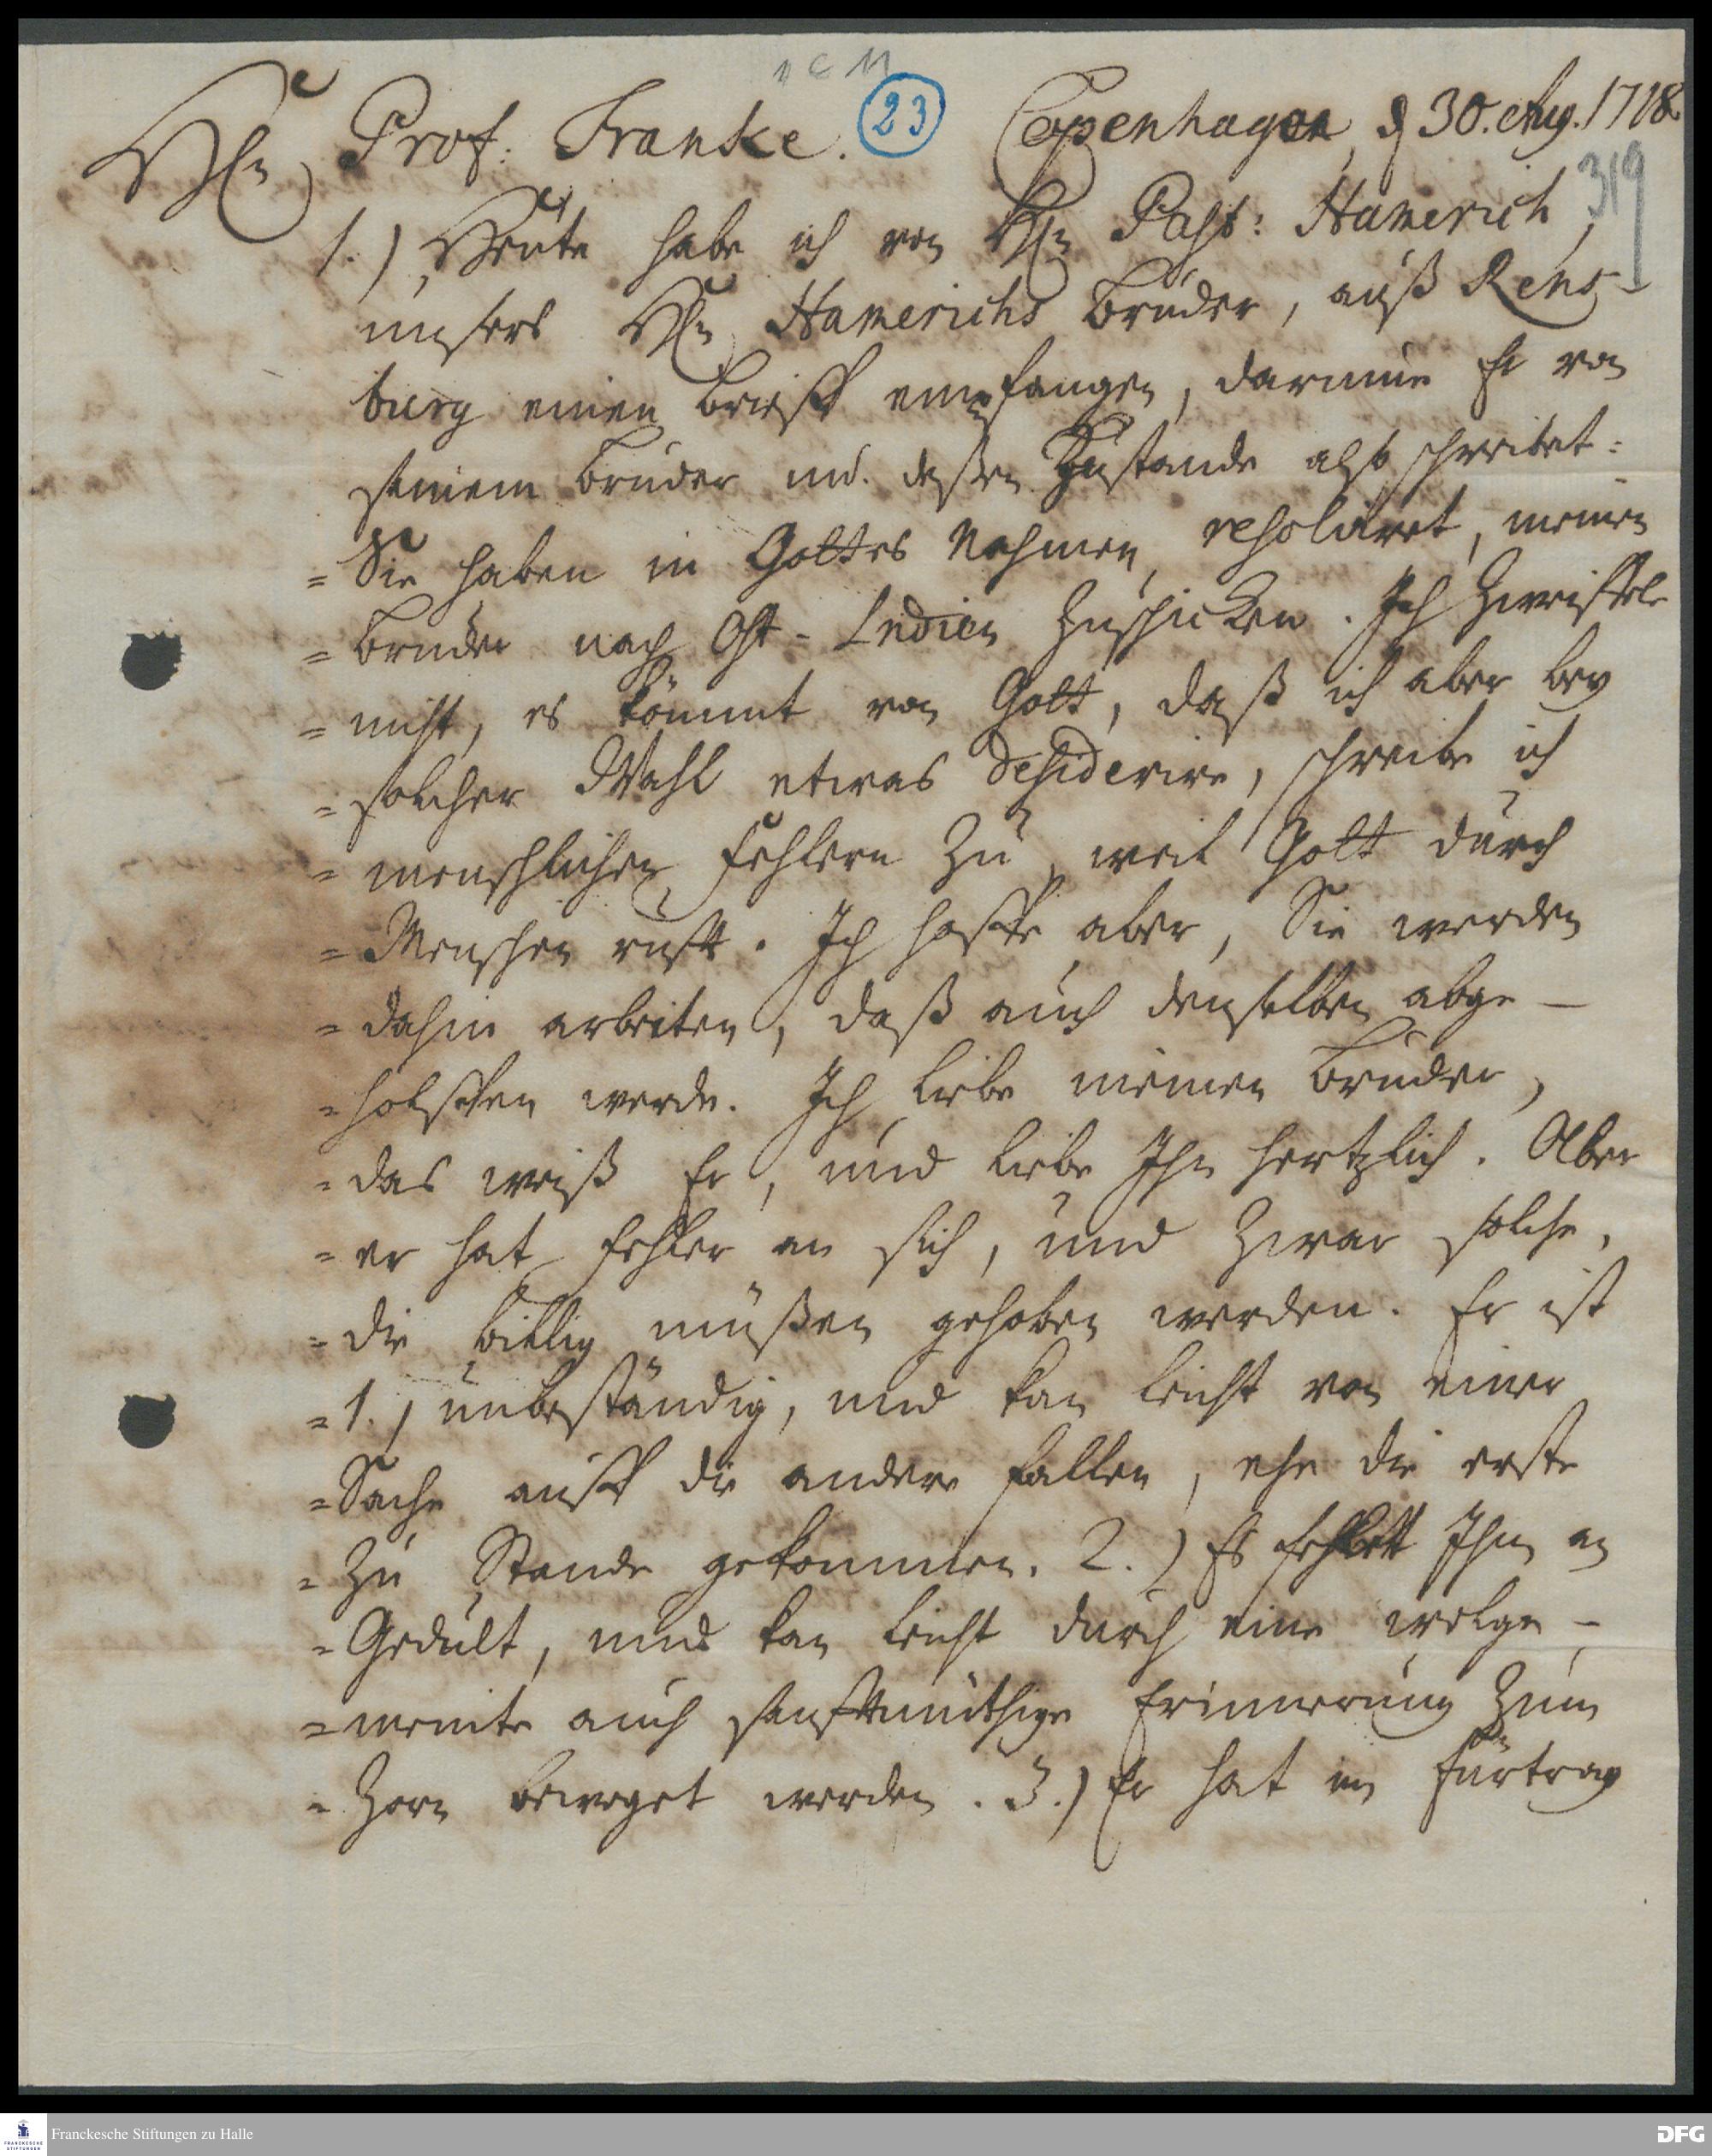 1 C 11
Hℓn Prof: Franke. 23 Copenhagen, d 30. Aug. 1718.
319
1.) Heute habe ich von Hℓn Past: Hamerich,
unsers Hℓn Hamerichs Bruder, auß Rens-
burg einen Brieff empfangen, darinne Er von
seinem Bruder und. deßen Zustande also schreibet:
= Sie haben in Gottes Nahmen resolviret, meinen
= Bruder nach Ost-Indien zuschicken. Ich zweiffele
= nicht, es kömmt von Gott, daß ich aber bey
= solcher Wahl etwas desiderire, schreibe ich
= menschlichen Fehlern zu, weil Gott durch
= Menschen rufft. Ich hoffe aber, Sie werden
= dahin arbeiten, daß auch denselben abge-
= holffen werde. Ich liebe meinen Bruder,
= das weiß Er, und liebe Ihn hertzlich. Aber
= er hat Fehler an sich, und zwar solche,
= die billig müßen gehoben werden. Er ist
= 1.) unbeständig, und kan leicht von einer
= Sache auff die andere fallen, ehe die erste
= zu Stande gekommen. 2.) Es fehlet Ihm an
= Gedult, und kan leicht durch eine wolge-
= meinte auch sanfftmüthige Erinnerung zum
= Zorn beweget werden. 3.) Er hat im Fürtrag
Franckesche Stiftungen zu Halle
FRANCKESCHE STIFTUNGEN
DFG